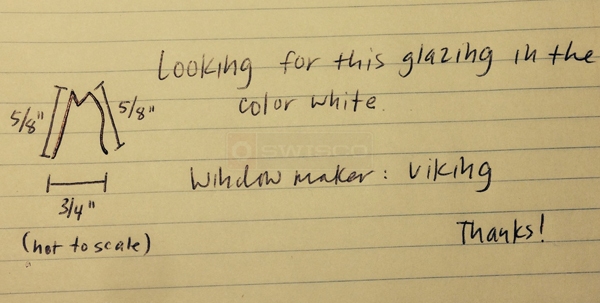 Looking for this glazing in the
color white.
5/8" 5/8"
SWISCO
Window maker: Viking
3/4"
(not to scale)
Thanks!